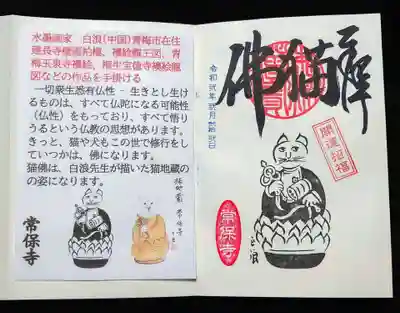 水墨画家　白浪(中国)青梅市在住
建長寺襖画柏槇、襖絵龍王図、青
梅玉泉寺襖絵、柳生宝徳寺襖絵龍
図などの作品を手掛ける
一切衆生悉有仏性 - 生きとし生け
けるものは、すべて仏陀になる可能性
(仏性)をもっており、すべて悟り
うるという仏教の思想があります。
きっと、猫や犬もこの世で修行をし
ていつかは、佛になります。
猫佛は、白浪先生が描いた猫地蔵の
の姿になります。
常保寺
猫地蔵
常保寺
佛猫
開運招福
常保寺
白浪